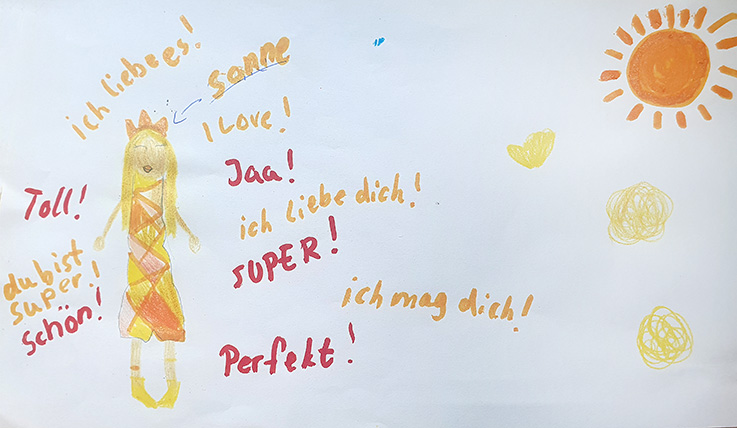 ich liebe es!
Sonne
I Love!
Jaa!
Toll!
ich liebe dich!
SUPER!
du bist
super!
schön!
ich mag dich!
Perfekt!